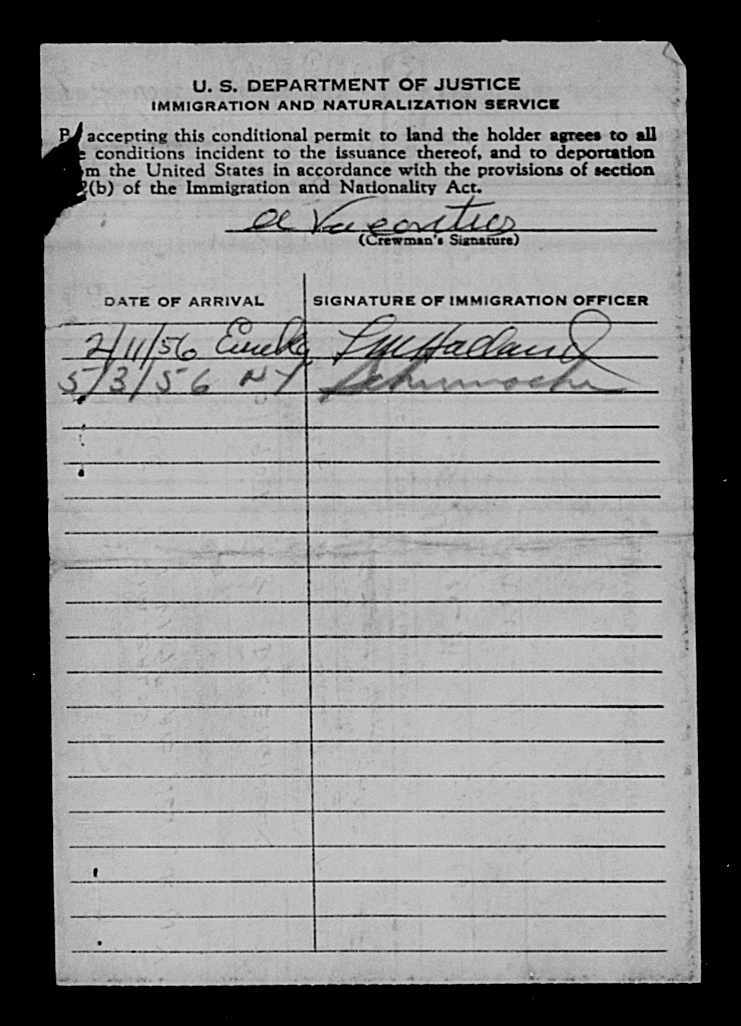 U. S. DEPARTMENT OF JUSTICE
IMMIGRATION AND NATURALIZATION SERVICE
accepting this conditional permit to land the holder agrees to all
conditions incident to the issuance thereof, and to deportation
the United States in accordance with the provisions of section
(b) of the Immigration and Nationality Act.
(Crewman's Signature)
DATE OF ARRIVAL SIGNATURE OF IMMIGRATION OFFICER
2/11/56 Eureka
5/3/56 NY